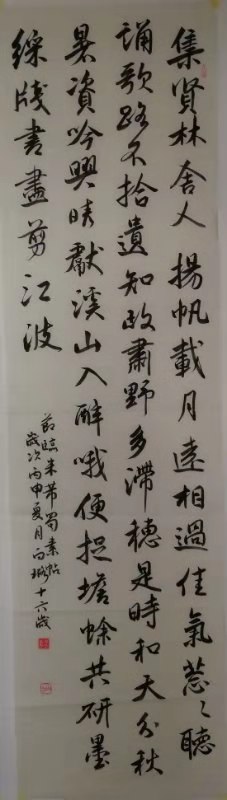 集賢林舍人 揚帆載月遠相過佳氣葱々聽
誦歌路不拾遺知政肅野多滯穗是時和天分秋
暑資吟興晴獻溪山入醉哦便捉蟾蜍共研墨
綵牋書盡剪江波
節臨米芾蜀素帖
歲次丙申夏月 十六歲